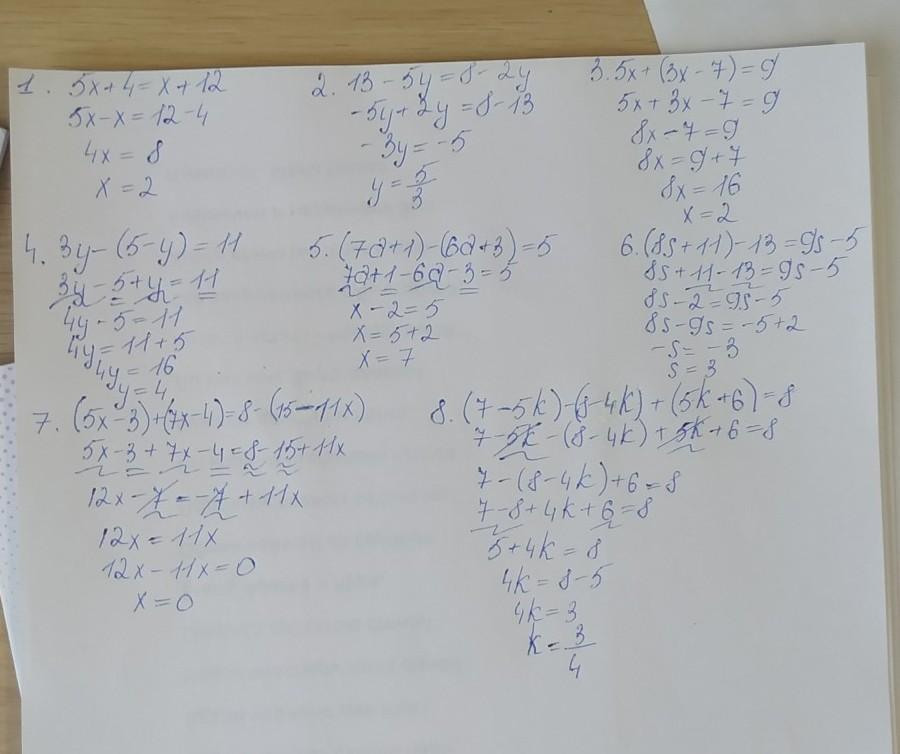 1. 5x+4=x+12
5x-x=12-4
4x=8
x=2
2. 13-5y=8-2y
-5y+2y=8-13
-3y=-5
y=5/3
3. 5x+(3x-7)=9
5x+3x-7=9
8x-7=9
8x=9+7
8x=16
x=2
4. 3y-(5-y)=11
3y-5+y=11
4y-5=11
4y=11+5
4y=16
y=4
5. (7a+1)-(6a+3)=5
7a+1-6a-3=5
x-2=5
x=5+2
x=7
6. (8s+11)-13=9s-5
8s+11-13=9s-5
8s-2=9s-5
8s-9s=-5+2
-s=-3
s=3
7. (5x-3)+(7x-4)=8-(15-11x)
5x-3+7x-4=8-15+11x
12x-7=-7+11x
12x=11x
12x-11x=0
x=0
8. (7-5k)-(8-4k)+(5k+6)=8
7-5k-(8-4k)+5k+6=8
7-(8-4k)+6=8
7-8+4k+6=8
5+4k=8
4k=8-5
4k=3
k=3/4